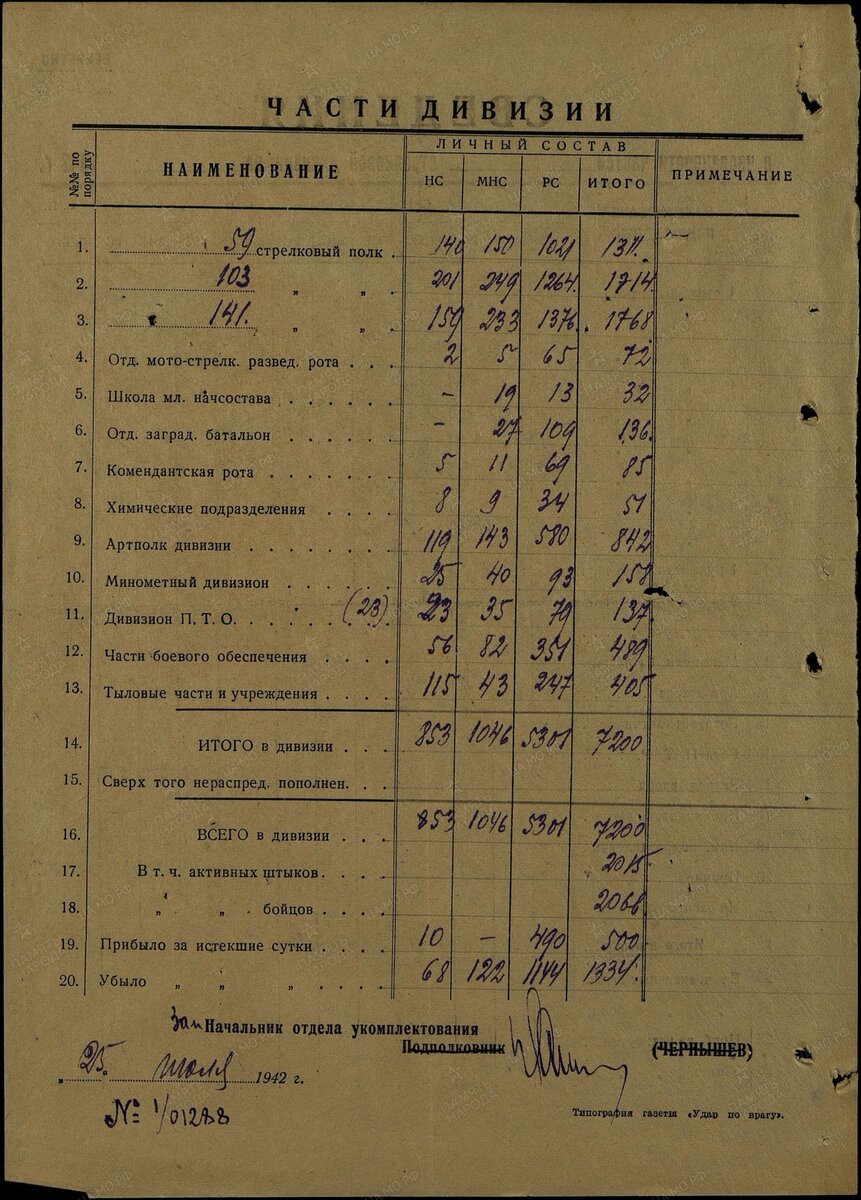 ЧАСТИ ДИВИЗИИ
№№ по порядку НАИМЕНОВАНИЕ ЛИЧНЫЙ СОСТАВ ПРИМЕЧАНИЕ
НС МНС РС ИТОГО
1. 59 стрелковый полк . 140 150 1021 1311.
2. 103 „ „ . 201 249 1264. 1714
3. 141. „ „ . 159 233 1376. 1768
4. Отд. мото-стрелк. развед. рота . . . 2 5 65 72
5. Школа мл. начсостава . . . . . . - 19 13 32
6. Отд. заград. батальон . . . . . . - 27 109 136.
7. Комендантская рота . . . . . . . 5 11 69 85
8. Химические подразделения . . . . 8 9 34 51
9. Артполк дивизии . . . . . . . . 119 143 580 842
10. Минометный дивизион . . . . . . 25 40 93 158
11. Дивизион П. Т. О. . . . . . (23) . 23 35 79 137.
12. Части боевого обеспечения . . . . 56 82 351 489
13. Тыловые части и учреждения . . . . 115 43 247 405
14. ИТОГО в дивизии . . . 853 1046 5301 7200
15. Сверх того нераспред. пополнен. . .
16. ВСЕГО в дивизии . . . 853 1046 5301 7200
17. В т. ч. активных штыков. . . . 2015
18. „ „ бойцов . . . . 2066
19. Прибыло за истекшие сутки . . . . 10 - 490 500
20. Убыло „ „ „ . . . . 68 122 1144 1334.
Зам Начальник отдела укомплектования
Подполковник (ЧЕРНЫШЕВ)
„25“ июля 1942 г.
№ 1/01288
Типография газеты «Удар по врагу».